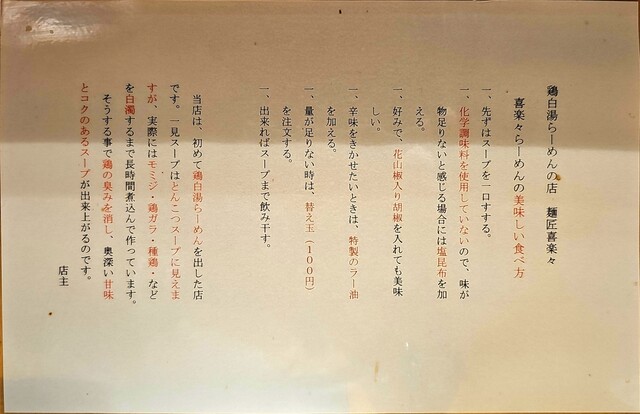 鶏白湯らーめんの店　麺匠喜楽々
喜楽々らーめんの美味しい食べ方
一、先ずはスープを一口すする。
一、化学調味料を使用していないので、味が
物足りないと感じる場合には塩昆布を加
える。
一、好みで、花山椒入り胡椒を入れても美味
しい。
一、辛味をきかせたいときは、特製のラー油
を加える。
一、量が足りない時は、替え玉（１００円）
を注文する。
一、出来ればスープまで飲み干す。
当店は、初めて鶏白湯らーめんを出した店
です。一見スープはとんこつスープに見えま
すが、実際にはモミジ・鶏ガラ・種鶏・など
を白濁するまで長時間煮込んで作っています。
そうする事で鶏の臭みを消し、奥深い甘味
とコクのあるスープが出来上がるのです。
店主